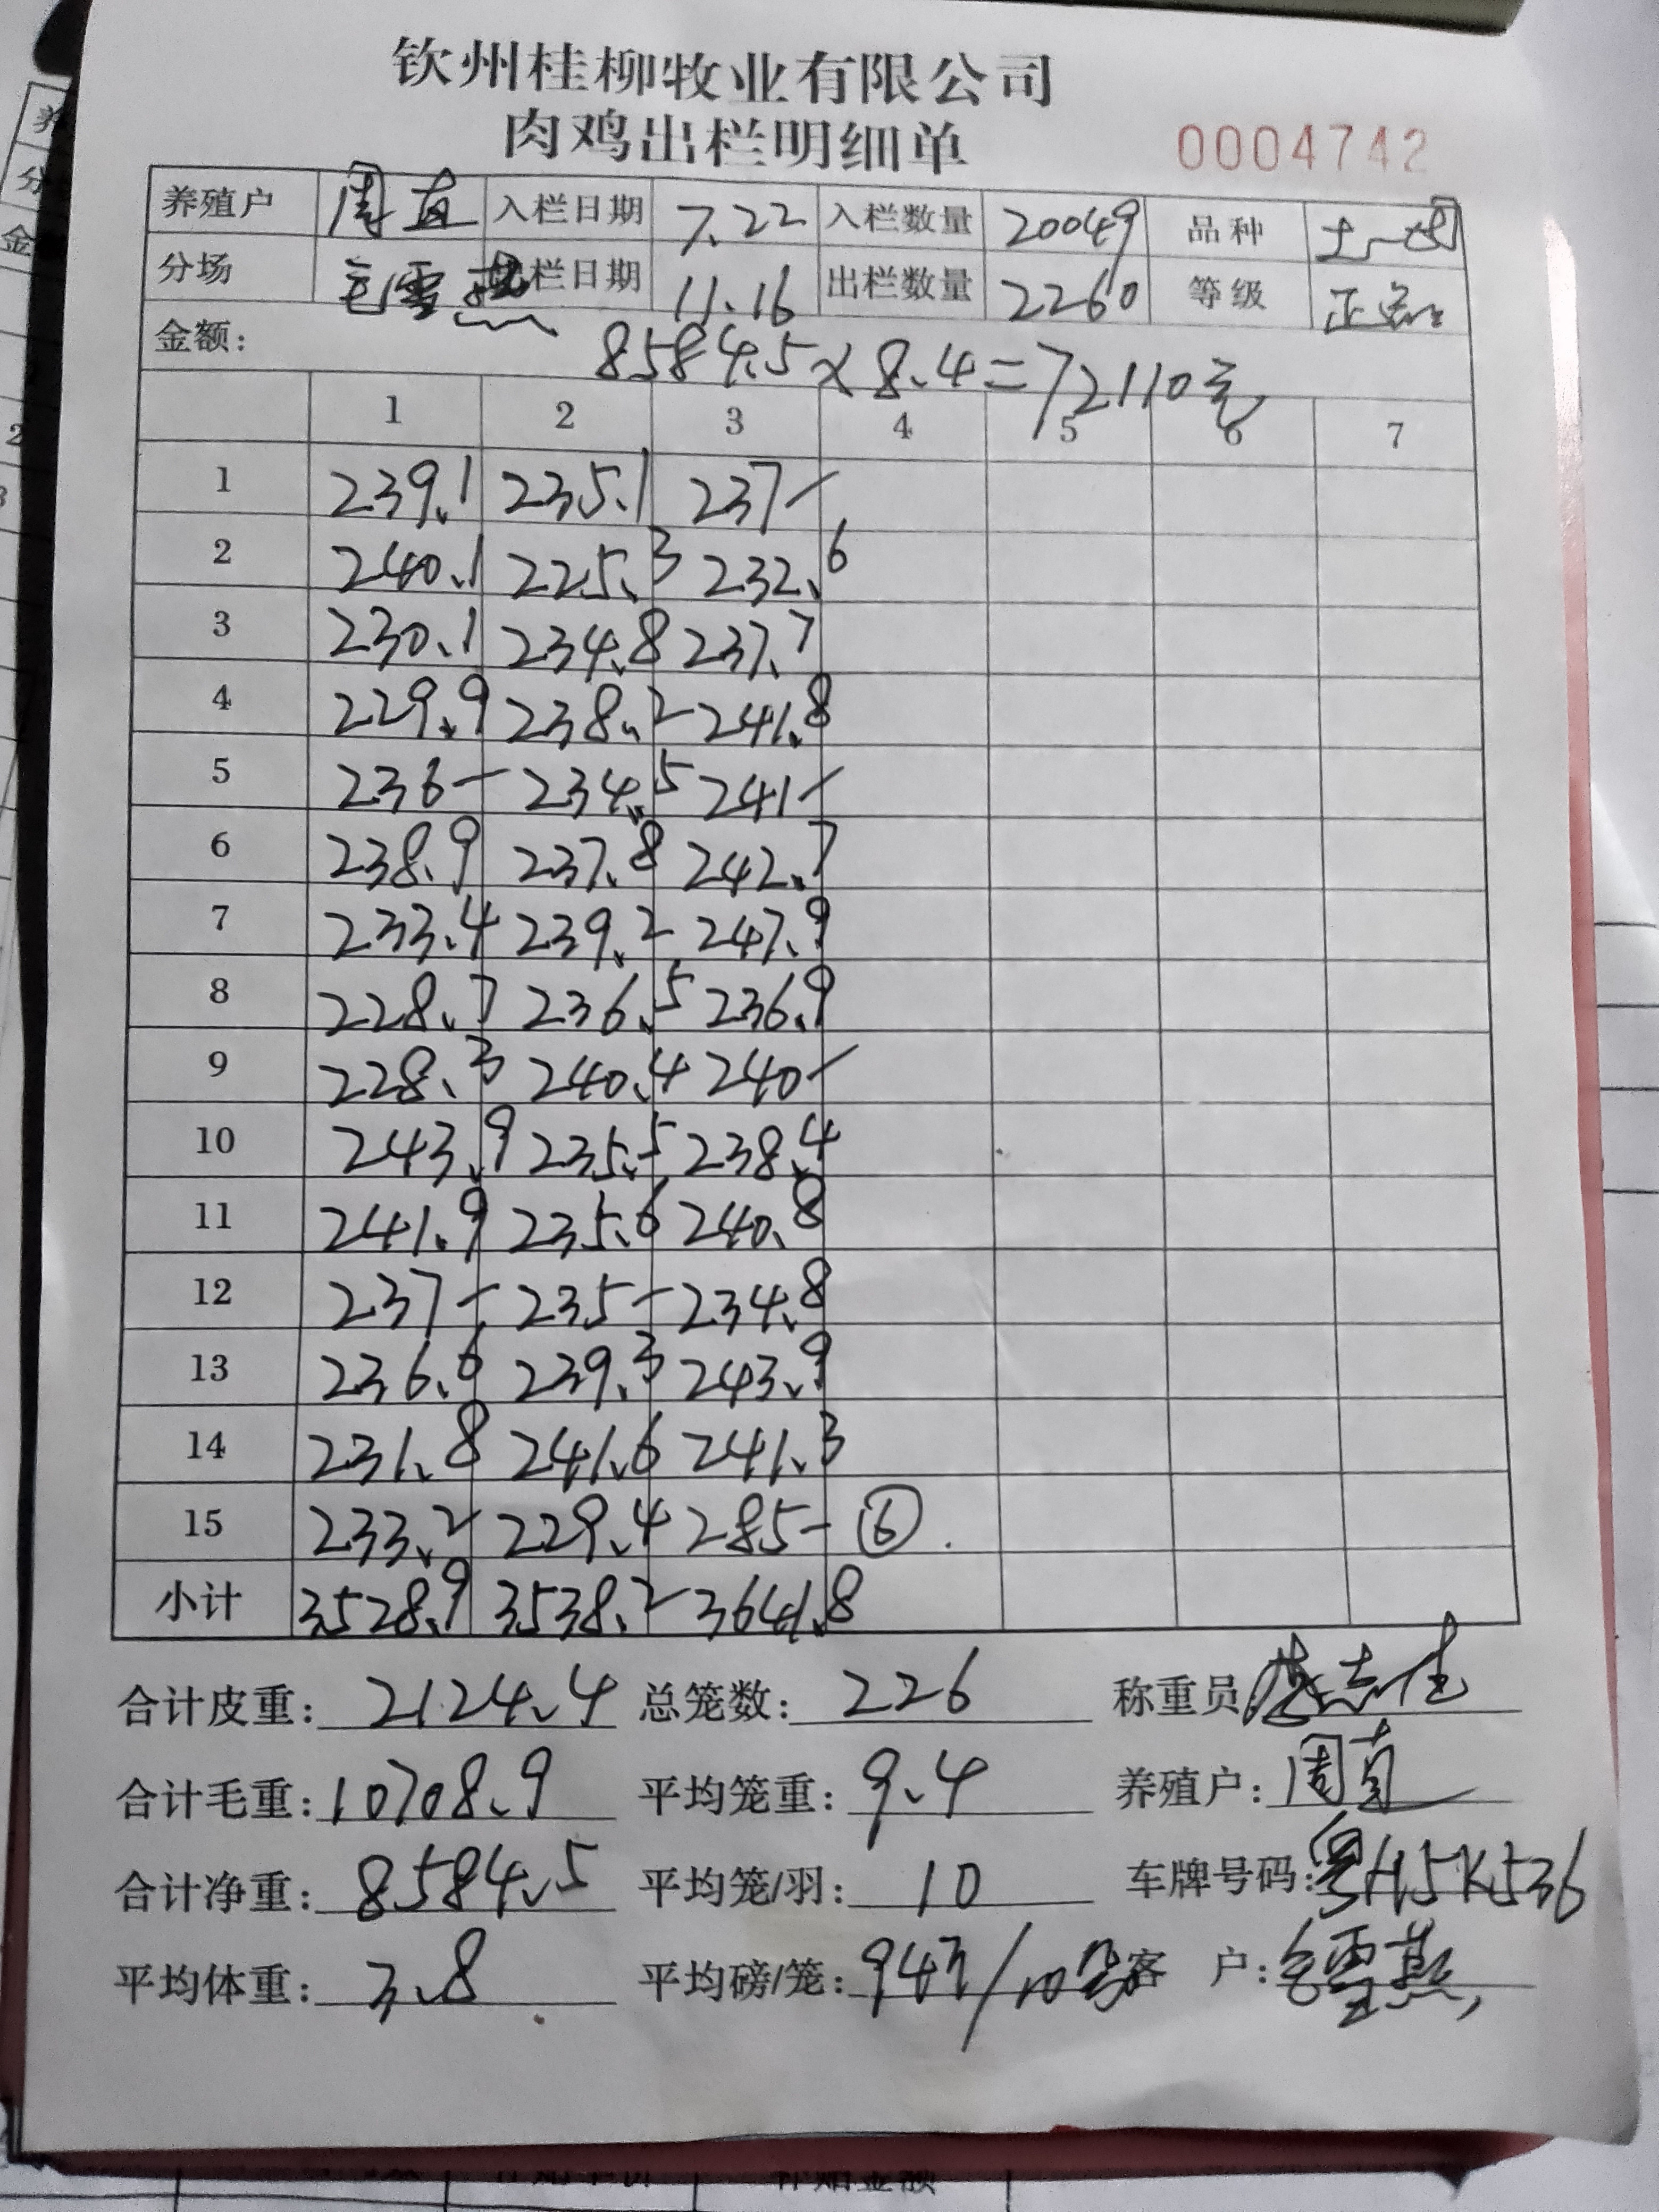 钦州桂柳牧业有限公司
肉鸡出栏明细单 0004742
养殖户 周直 入栏日期 7.22 入栏数量 20049 品种 土一
分场 雪燕 出栏日期 11.16 出栏数量 2260 等级 正品
金额: 8584.5×8.4=72110元
1 2 3 4 5 6 7
1 239.1 235.1 237-
2 240.1 225.3 232.6
3 230.1 234.8 237.7
4 229.9 238.2 241.8
5 236- 234.5 241-
6 238.9 237.8 242.7
7 233.4 239.2 247.9
8 228.7 236.5 236.9
9 228.3 240.4 240-
10 243.9 235.5 238.4
11 241.9 235.6 240.8
12 237- 235- 234.8
13 236.6 239.3 243.9
14 231.8 241.6 241.3
15 233.2 229.4 285- ⑥
小计 3528.9 3538.2 3641.8
合计皮重: 2124.4 总笼数: 226 称重员 志佳
合计毛重: 10708.9 平均笼重: 9.4 养殖户: 周直
合计净重: 8584.5 平均笼/羽: 10 车牌号码: 粤H5K536
平均体重: 3.8 平均磅/笼: 94/10 客 户: 雪燕